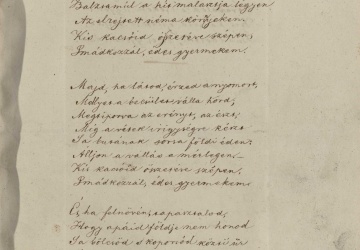 Balzsamúl a kis malasztja legyen
Az elvejsett néma környeken.
Kis kacsóid, összetéve szépen,
Imádkozzál, édes gyermekem.
Majd, ha látod, érzed a nyomort,
Mellyet a becsületes válla hord;
Megtiporva az erényt, az észt,
Míg a vétek irigységre készt
S a butának sorsa földi éden:
Álljon a vallás a mérlegen.
Kis kacsóid összetéve szépen,
Imádkozzál, édes gyermekem.
És ha felnövén, tapasztalod,
Hogy apáid földje nem honod
S a bölcsőd s koporsód közti űr